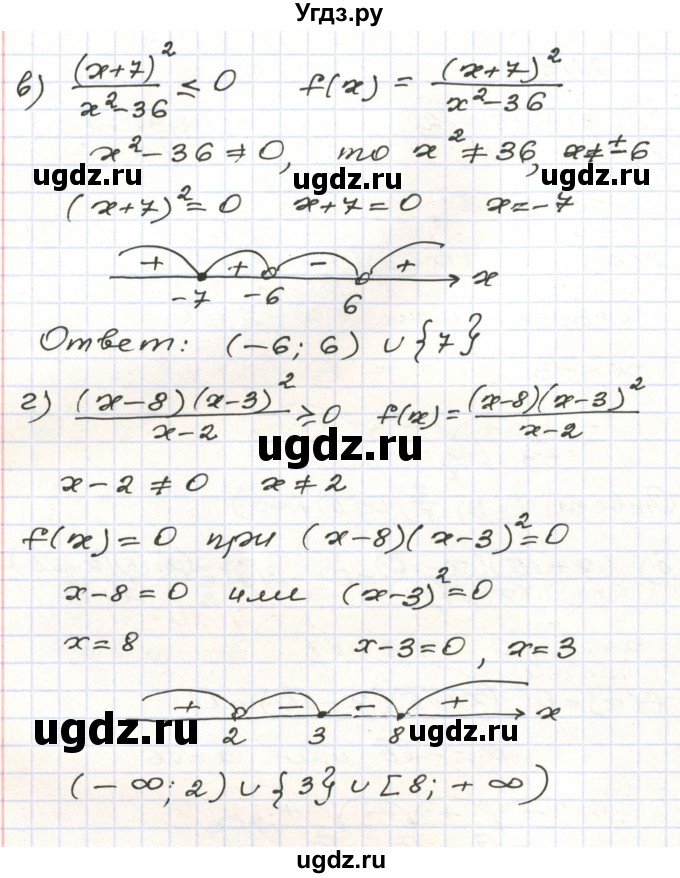 Угдз.ру
в) (x+7)²/(x²-36) ≤ 0 f(x) = (x+7)²/(x²-36)
x²-36≠0, то x²≠36, x≠±6
ugdz.ru ugdz.ru ugdz.ru
(x+7)²=0 x+7=0 x=-7
+ + - + x
-7 -6 6
Ответ: (-6; 6) ∪ {7}
г) (x-8)(x-3)²/(x-2) ≥ 0 f(x) = (x-8)(x-3)²/(x-2)
ugdz.ru
x-2≠0 x≠2
f(x)=0 при (x-8)(x-3)²=0
x-8=0 или (x-3)²=0
x=8 x-3=0, x=3
+ - - + x
ugdz.ru 2 3 8 ugdz.ru
(-∞; 2) ∪ {3} ∪ [8; +∞)
ugdz.ru